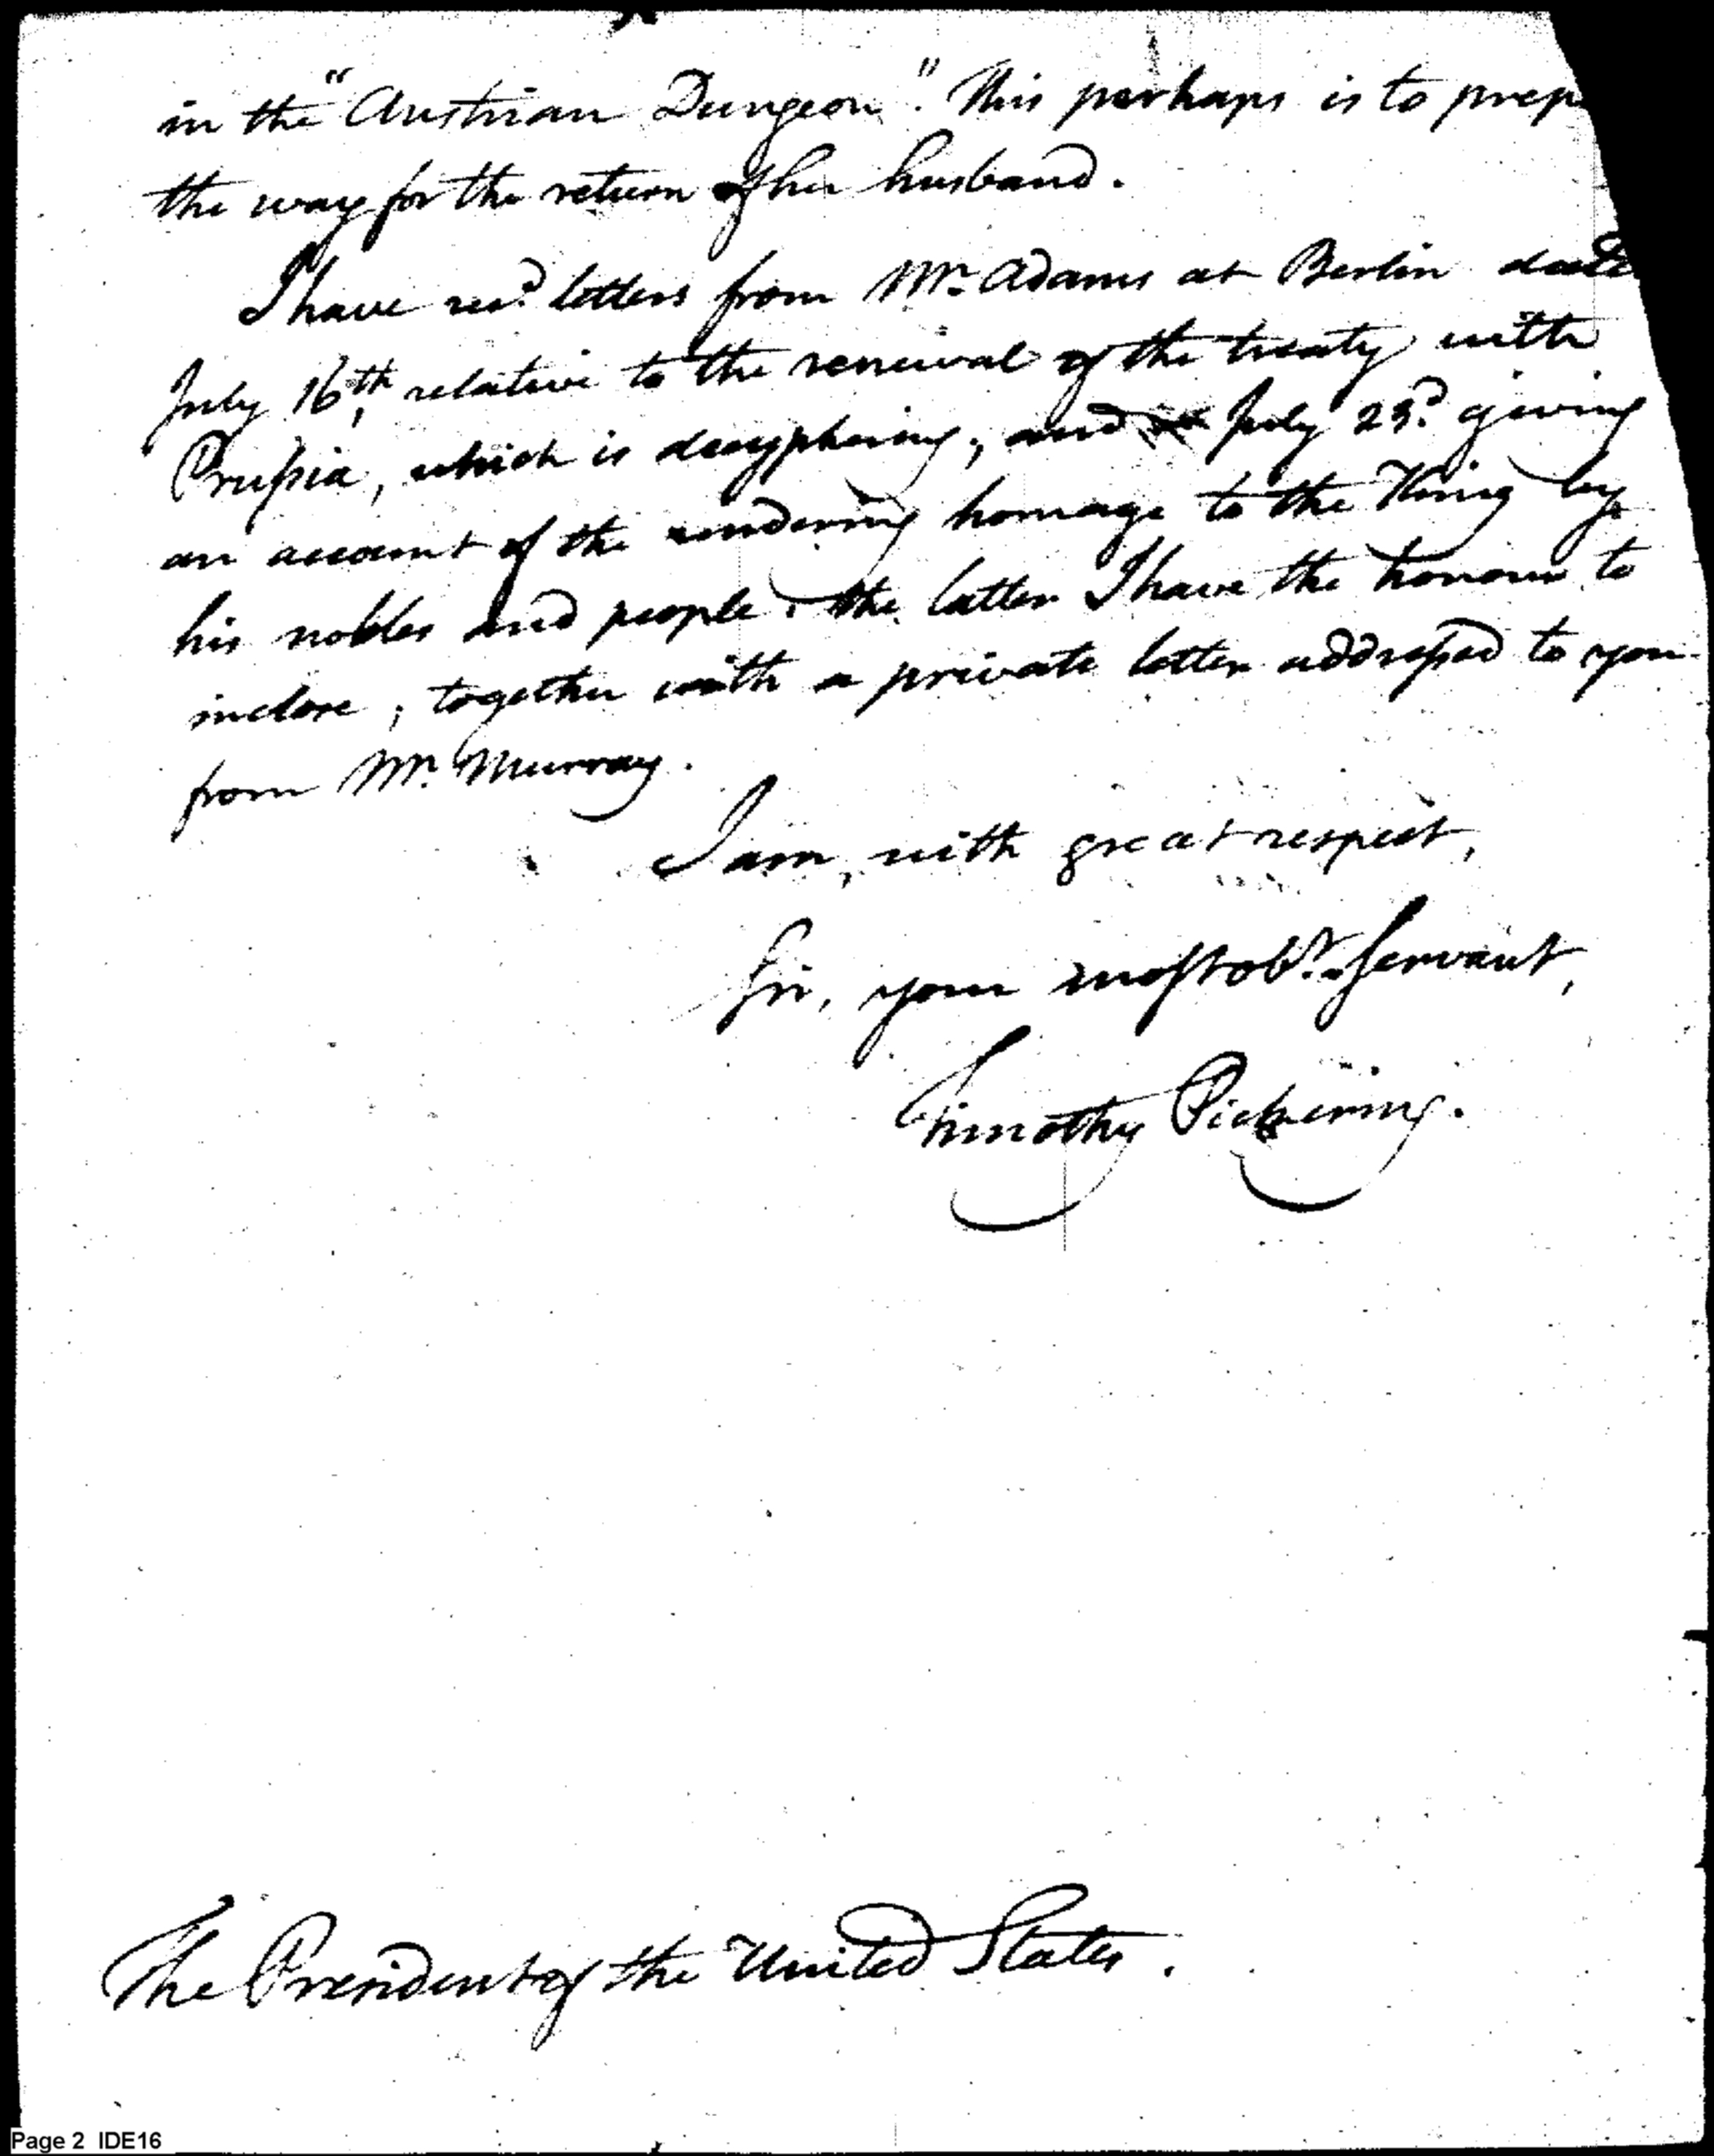 in the "Austrian Dungeon". This perhaps is to prep
the way for the return of her husband.
I have recd. letters from Mr. Adams at Berlin date
July 16th, relative to the renewal of the treaty with
Prussia, which is decyphering; and July 23d. giving
an account of the rendering homage to the King by
his nobles and people: the latter I have the honour to
inclose, together with a private letter addressed to you
from Mr. Murray.
I am, with great respect,
Sir, your most obt. servant,
Timothy Pickering.
The President of the United States.
Page 2 IDE16